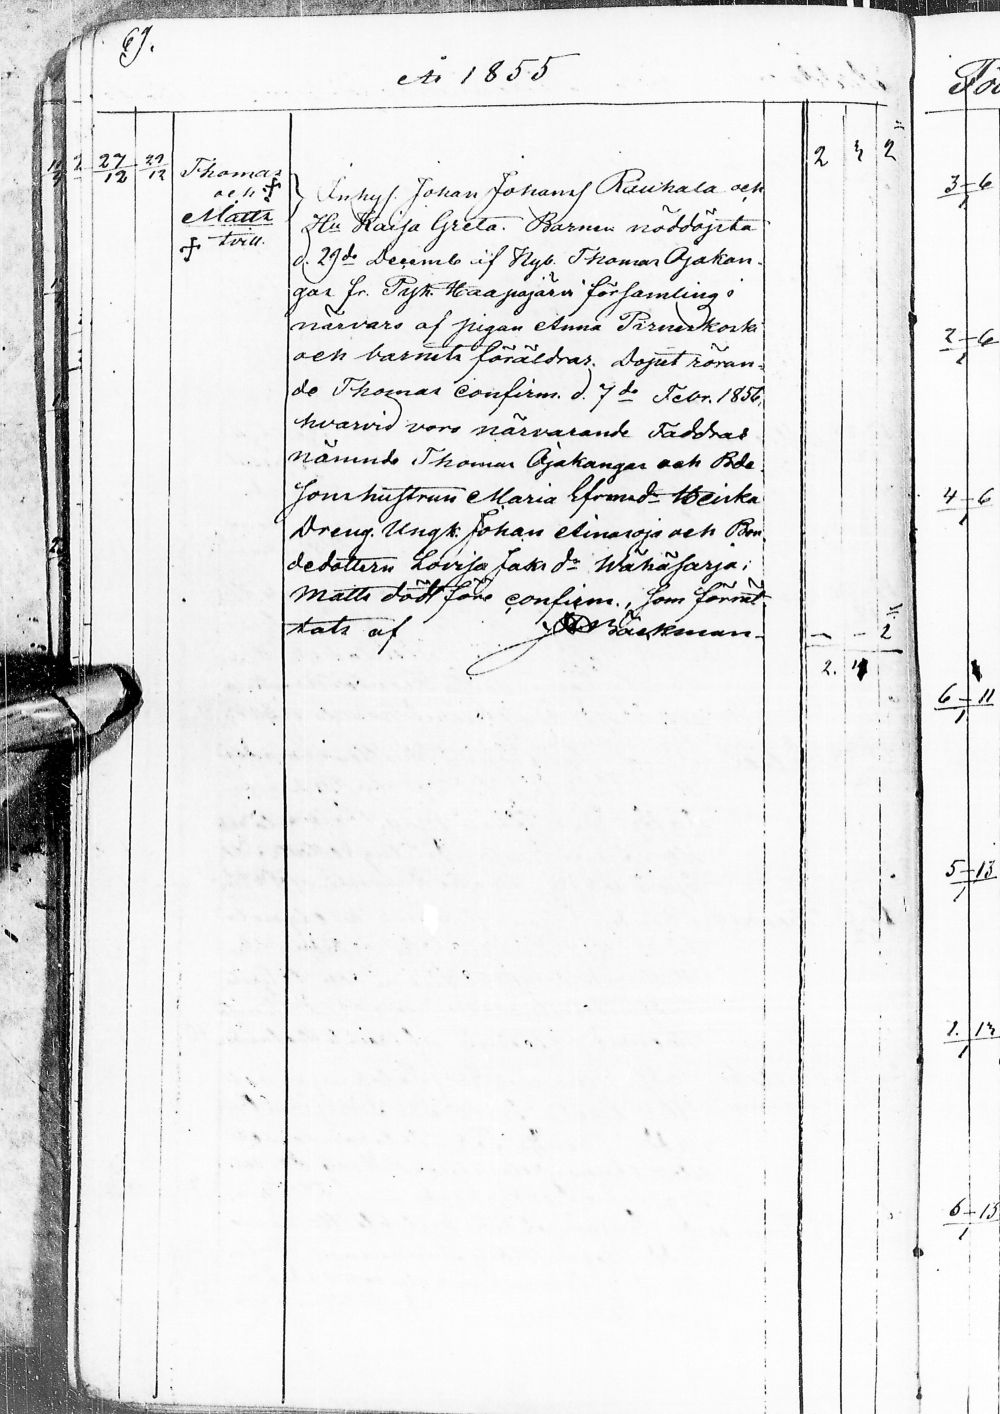 69.
År 1855
27/12 29/12 Thomas
och
Matts
tvill.
Inhys. Johan Johanss Rauhala och
Hu Kaisa Greta. Barnen nöddöpta
d. 29de Decemb. af Nyb. Thomas Ojakan-
gas fr. Pyh. Haapajärvi församling i
närvaro af pigan Anna Pirneskoski
och barnets föräldrar. Dopet röran-
de Thomas confirm. d. 7de Febr. 1856,
hvarvid voro närvarande Faddrar
nämnde Thomas Ojakangas och Bde
Sonshustrun Maria Efraimsdr
Dreng. Ungk. Johan Ainasoja och Bon-
dedottern Lovisa Jaks dr Wähäsarja;
Matts död före confirm., som förrät-
tats af Bäckman.
2 2
- - 2
2.
Föd
3-6
1
2-6
1
4-6
1
6-11
1
5-13
1
1. 13
1
6-13
1